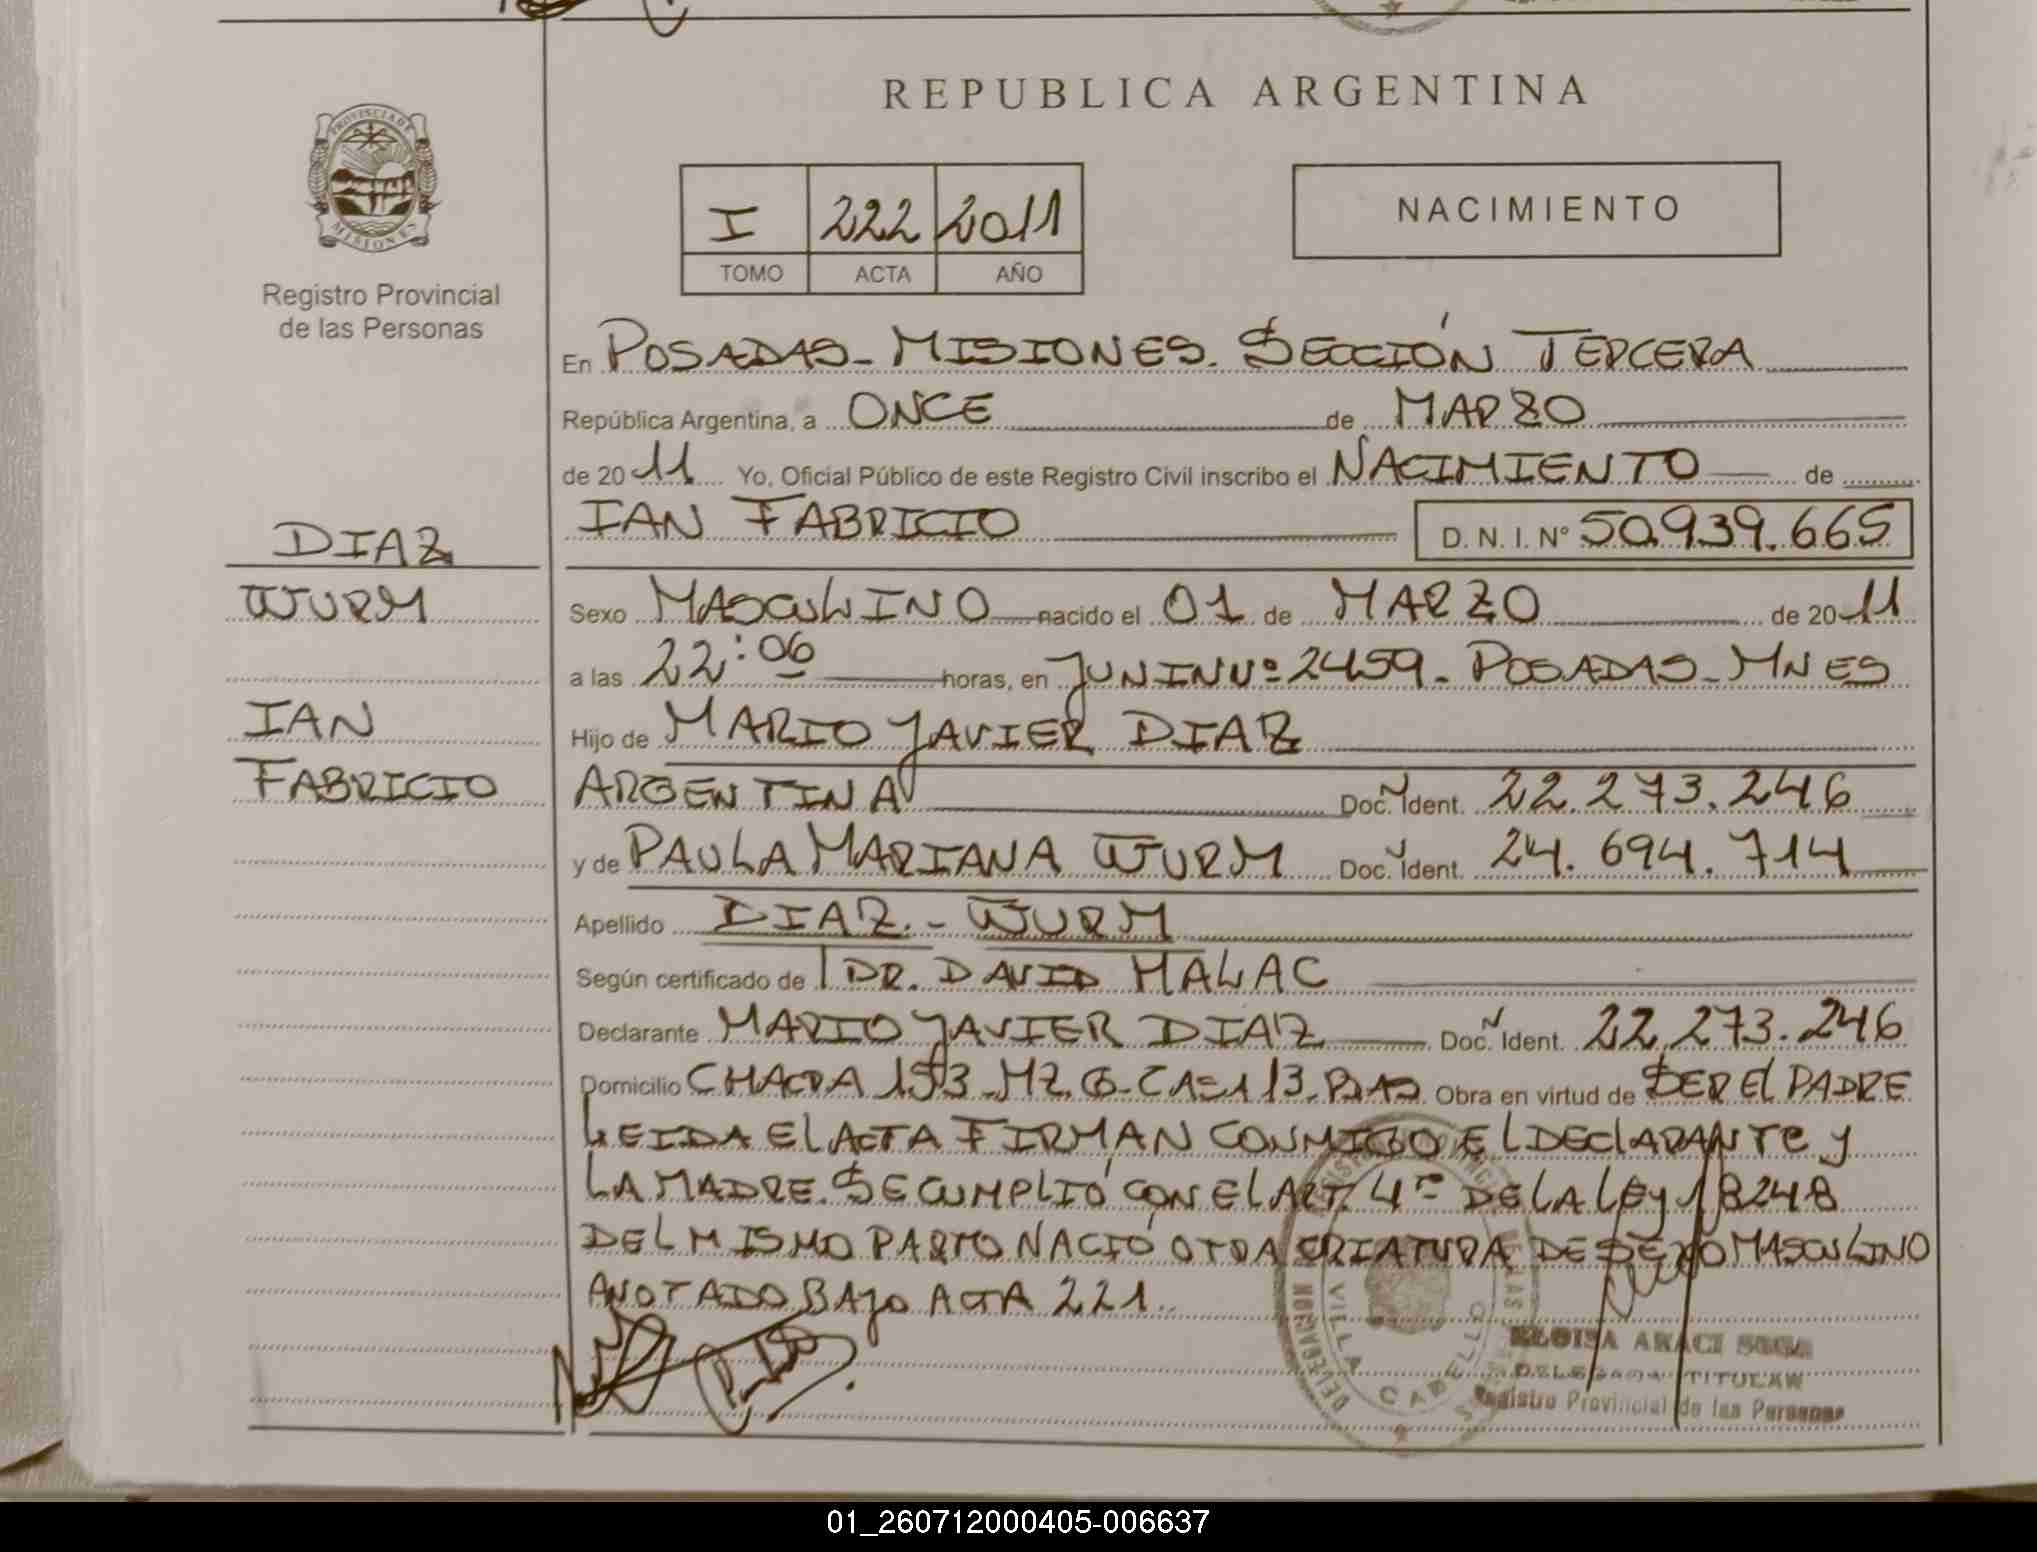 REPUBLICA ARGENTINA
PROVINCIA DE
MISIONES
Registro Provincial
de las Personas
I 222 2011
TOMO ACTA AÑO
NACIMIENTO
En POSADAS - MISIONES. SECCIÓN TERCERA
República Argentina, a ONCE de MARZO
de 2011 Yo, Oficial Público de este Registro Civil inscribo el NACIMIENTO de
IAN FABRICIO D. N. I. Nº 50.939.665
DIAZ
WURM
IAN
FABRICIO
Sexo MASCULINO nacido el 01 de MARZO de 2011
a las 22:06 horas, en JUNIN Nº 2459 - POSADAS - MNES
Hijo de MARIO JAVIER DIAZ
ARGENTINA Doc. Ident. 22.273.246
y de PAULA MARIANA WURM Doc. Ident. 24.694.714
Apellido DIAZ - WURM
Según certificado de DR. DAVID MALAC
Declarante MARIO JAVIER DIAZ Doc. Ident. 22.273.246
Domicilio CHACRA 153 - MZ. G - CAS 113 - PDAS Obra en virtud de SER EL PADRE
LEIDA EL ACTA FIRMAN CONMIGO EL DECLARANTE Y
LA MADRE. SE CUMPLIÓ CON EL ART. 4º DE LA LEY 18248
DEL MISMO PARTO NACIÓ OTRA CRIATURA DE SEXO MASCULINO
ANOTADO BAJO ACTA 221.
VILLA CABELLO
ELOISA ARACI SOSA
DELEGADA TITULAR
Registro Provincial de las Personas
01_260712000405-006637